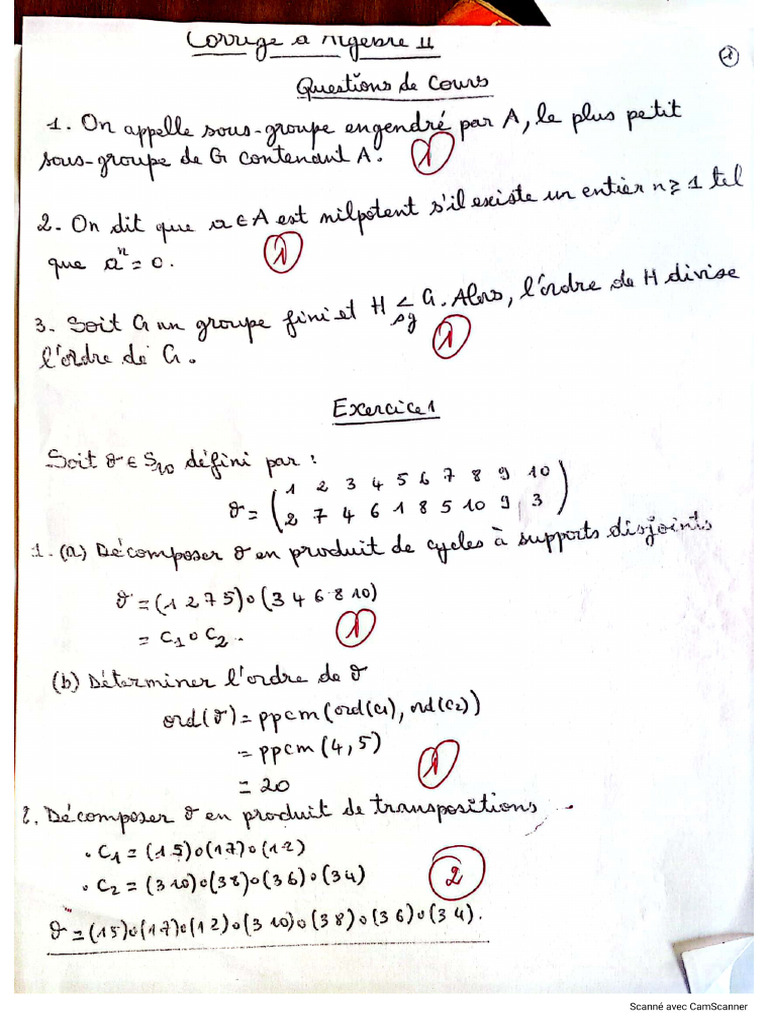 Corrigé d'Algèbre II
①
Questions de Cours
1. On appelle sous-groupe engendré par A, le plus petit
sous-groupe de G contenant A. ①
2. On dit que a ∈ A est nilpotent s'il existe un entier n ≥ 1 tel
que aⁿ = 0. ①
3. Soit G un groupe fini et H < G. Alors, l'ordre de H divise
sg
l'ordre de G. ①
Exercice 1
Soit σ ∈ S₁₀ défini par :
σ = ( 1 2 3 4 5 6 7 8 9 10
2 7 4 6 1 8 5 10 9 3 )
1. (a) Décomposer σ en produit de cycles à supports disjoints
σ = (1 2 7 5) ∘ (3 4 6 8 10)
= C₁ ∘ C₂. ①
(b) Déterminer l'ordre de σ
ord(σ) = ppcm(ord(C₁), ord(C₂))
= ppcm(4, 5)
= 20 ①
2. Décomposer σ en produit de transpositions.
• C₁ = (1 5) ∘ (1 7) ∘ (1 2)
• C₂ = (3 10) ∘ (3 8) ∘ (3 6) ∘ (3 4) ②
σ = (1 5) ∘ (1 7) ∘ (1 2) ∘ (3 10) ∘ (3 8) ∘ (3 6) ∘ (3 4).
Scanné avec CamScanner